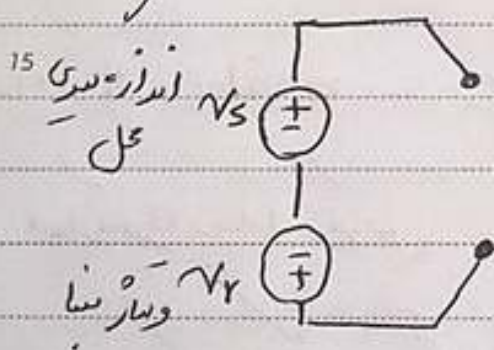 15
اندازه‌گیری
محل
Vs
+
-
-
+
Vr
ولتاژ مبنا